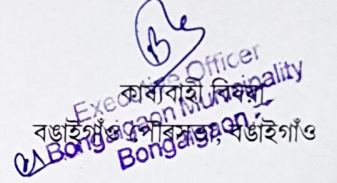 কাৰ্য্যবাহী বিষয়া
বঙাইগাঁও পৌৰসভা, বঙাইগাঁও
Executive Officer
Bongaigaon Municipality
Bongaigaon